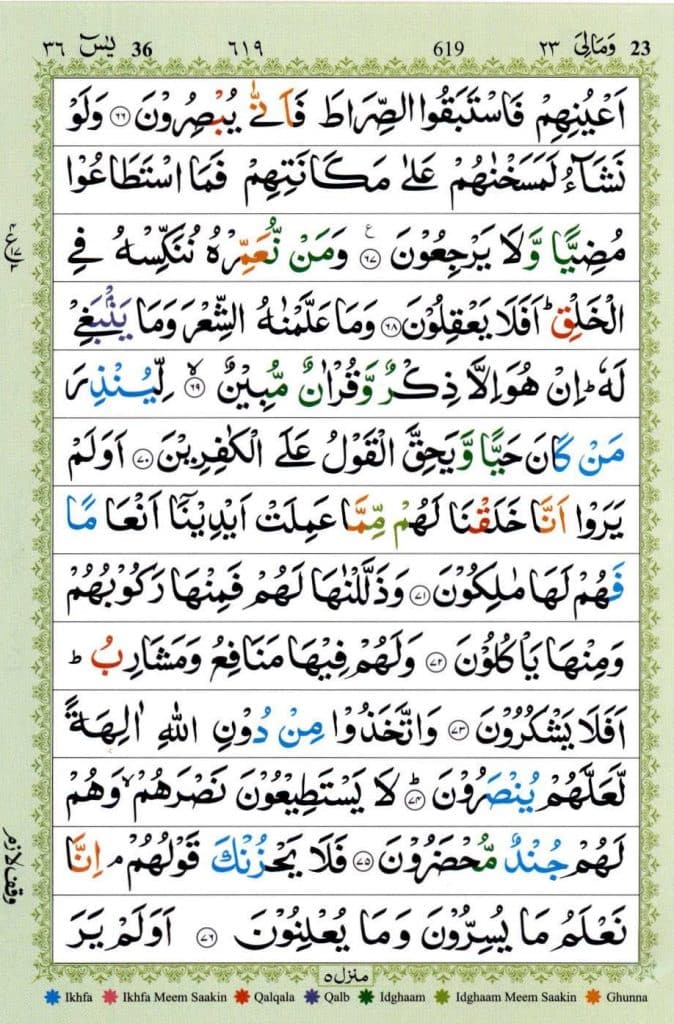 23 وَمَالِیَ ٢٣ 619 ٦١٩ 36 یٰسٓ ٣٦
اَعْيُنِهِمْ فَاسْتَبَقُوا الصِّرَاطَ فَاَنّٰى يُبْصِرُوْنَ ﴿٦٦﴾ وَلَوْ
نَشَآءُ لَمَسَخْنٰهُمْ عَلٰى مَكَانَتِهِمْ فَمَا اسْتَطَاعُوْا
مُضِيًّا وَّلَا يَرْجِعُوْنَ ﴿٦٧﴾ ع وَمَنْ نُّعَمِّرْهُ نُنَكِّسْهُ فِى
الْخَلْقِ ؕ اَفَلَا يَعْقِلُوْنَ ﴿٦٨﴾ وَمَا عَلَّمْنٰهُ الشِّعْرَ وَمَا يَنْۢبَغِىْ
لَهٗ ؕ اِنْ هُوَ اِلَّا ذِكْرٌ وَّقُرْاٰنٌ مُّبِيْنٌ ﴿٦٩﴾ ۙ لِّيُنْذِرَ
مَنْ كَانَ حَيًّا وَّيَحِقَّ الْقَوْلُ عَلَى الْكٰفِرِيْنَ ﴿٧٠﴾ اَوَلَمْ
يَرَوْا اَنَّا خَلَقْنَا لَهُمْ مِّمَّا عَمِلَتْ اَيْدِيْنَاۤ اَنْعَامًا
فَهُمْ لَهَا مٰلِكُوْنَ ﴿٧١﴾ وَذَلَّلْنٰهَا لَهُمْ فَمِنْهَا رَكُوْبُهُمْ
وَمِنْهَا يَاْكُلُوْنَ ﴿٧٢﴾ وَلَهُمْ فِيْهَا مَنَافِعُ وَمَشَارِبُ ؕ
اَفَلَا يَشْكُرُوْنَ ﴿٧٣﴾ وَاتَّخَذُوْا مِنْ دُوْنِ اللّٰهِ اٰلِهَةً
لَّعَلَّهُمْ يُنْصَرُوْنَ ؕ ﴿٧٤﴾ لَا يَسْتَطِيْعُوْنَ نَصْرَهُمْ ۙ وَهُمْ
لَهُمْ جُنْدٌ مُّحْضَرُوْنَ ﴿٧٥﴾ فَلَا يَحْزُنْكَ قَوْلُهُمْ ۘ اِنَّا
نَعْلَمُ مَا يُسِرُّوْنَ وَمَا يُعْلِنُوْنَ ﴿٧٦﴾ اَوَلَمْ يَرَ
وقف لازم
منزل ٥
Ikhfa Ikhfa Meem Saakin Qalqala Qalb Idghaam Idghaam Meem Saakin Ghunna